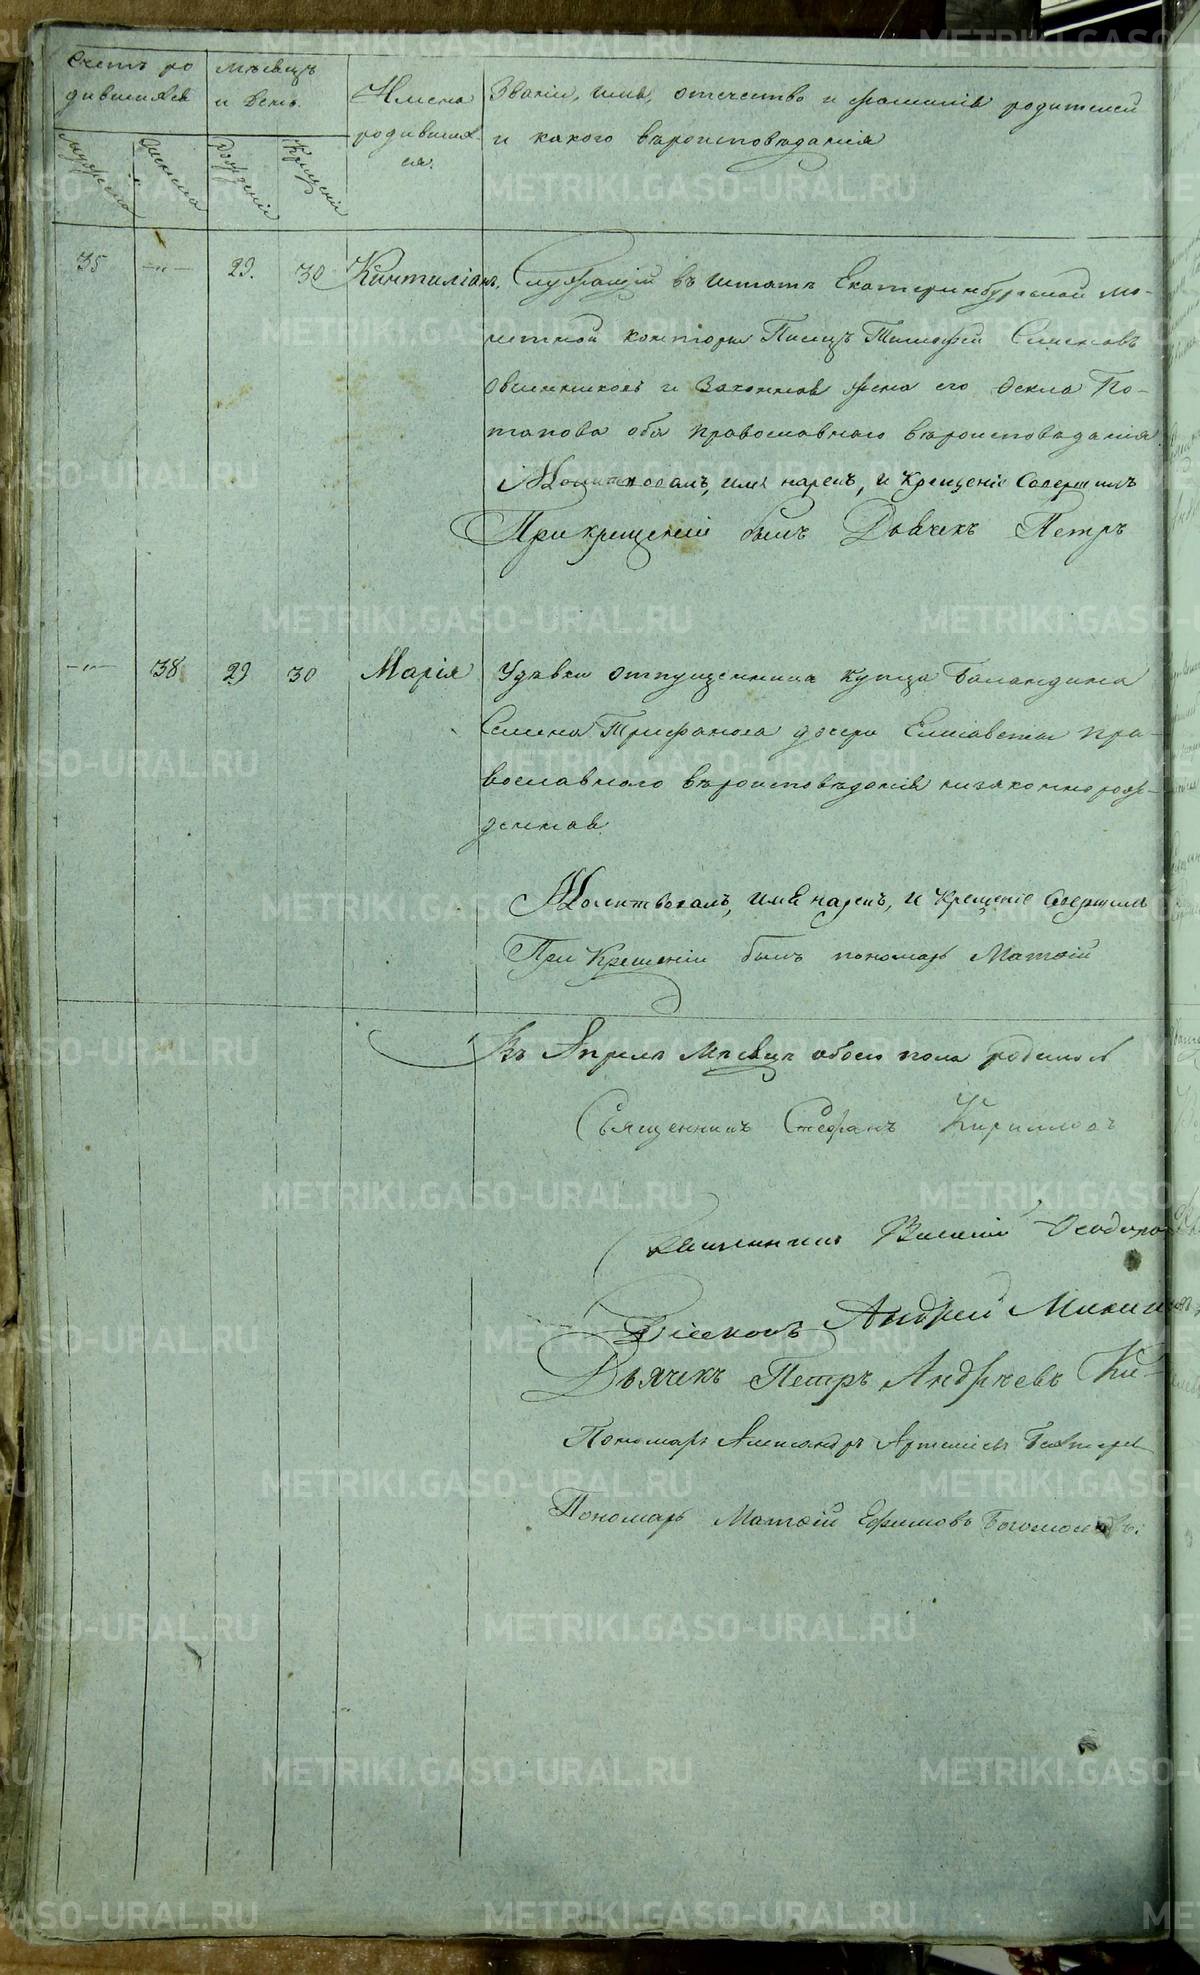 Счетъ ро
дившихся
мѣсяцъ
и день.
Имена
родивших
ся.
Званіе, имя, отечество и фамилія родителей
и какого вѣроисповѣданія
мужеска
женска
рожденія
крещенія
35 —"— 29. 30 Кинтиліанъ, Служащій въ штатѣ Екатеринбургской мо-
нетной конторы Писецъ Тимофей Семеновъ
Овчинниковъ и Законная жена его Ѳекла По-
тапова оба православнаго вѣроисповеданія
Молитвовалъ, имя нарекъ, и Крещеніе Совершилъ
При крещеніи былъ Дьячекъ Петръ
—"— 38 29 30 Марія У дѣвки отпущенника купца Баландина
Семена Трифанова дочери Елисаветы пра-
вославнаго вѣроисповѣданія незаконнорож-
денная
Молитвовалъ, имя нарекъ, и Крещеніе Совершилъ
При Крещеніи былъ пономарь Матѳій
Въ Апрелѣ Мѣсяцѣ обоего пола родилось
Священникъ Стефанъ Кирилловъ
Священникъ Василій Ѳеодоро
Діаконъ Андрей
Дьячекъ Петръ Андреевъ Ки-
Пономарь Александръ
Пономарь Матѳій Ефимовъ Богомоловъ:
METRIKI.GASO-URAL.RU